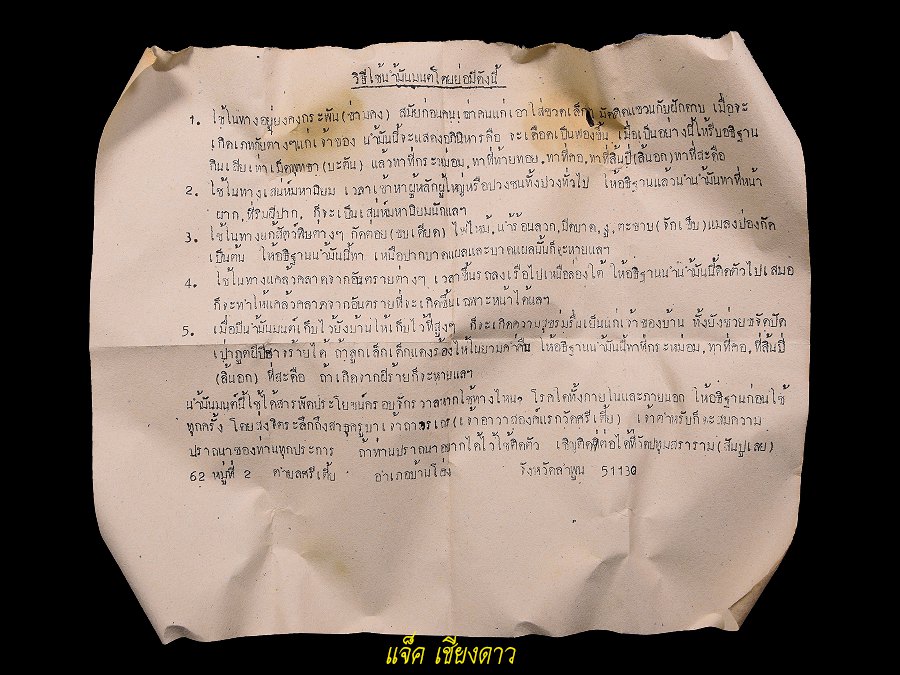 วิธีใช้น้ำมันมนต์โดยย่อมีดังนี้
1. ใช้ในทางอยู่ยงคงกระพัน(ข่ามคง) สมัยก่อนคนเฒ่าคนแก่เอาใส่ขวดเล็กๆ มัดติดแขวนกับฝักดาบ เมื่อจะ
เกิดเภทภัยต่างๆแก่เจ้าของ น้ำมันนี้จะแสดงอภินิหารคือ จะเดือดเป็นฟองขึ้น เมื่อเป็นอย่างนี้ให้รีบอธิฐาน
กินเสียเท่าเม็ดพุทธา(บะตัน) แล้วทาที่กระหม่อม,ทาที่ท้ายทอย,ทาที่คอ,ทาที่ลิ้นปี่(ลิ้นอก)ทาที่สะดือ
2. ใช้ในทางเสน่ห์มหานิยม เวลาเข้าหาผู้หลักผู้ใหญ่หรือปวงชนทั้งปวงทั่วไป ให้อธิฐานแล้วนำน้ำมันทาที่หน้า
ผาก,ที่ริมฝีปาก, ก็จะเป็นเสน่ห์มหานิยมนักแลฯ
3. ใช้ในทางแก้สัตว์พิษต่างๆ กัดต่อย(ขบเดียด) ไฟไหม้,น้ำร้อนลวก,มีดบาด,งู,ตะขาบ(จักเข็บ)แมลงป่องกัด
เป็นต้น ให้อธิฐานน้ำมันนี้ทา เหนือปากบาดแผลและบาดแผลนั้นก็จะหายแลฯ
4. ใช้ในทางแคล้วคลาดจากอันตรายต่างๆ เวลาขึ้นรถลงเรือไปเหนือล่องใต้ ให้อธิฐานนำน้ำมันนี้ติดตัวไปเสมอ
ก็จะทำให้แคล้วคลาดจากอันตรายที่จะเกิดขึ้นเฉพาะหน้าได้แลฯ
5. เมื่อมีน้ำมันมนต์เก็บไว้ยังบ้านให้เก็บไว้ที่สูงๆ ก็จะเกิดความสุขร่มรื่นเย็นแก่เจ้าของบ้าน ทั้งยังช่วยขจัดปัด
เป่าภูตผีปีศาจร้ายได้ ถ้าลูกเล็กเด็กแดงร้องไห้ในยามค่ำคืน ให้อธิฐานน้ำมันนี้ทาที่กระหม่อม,ทาที่คอ,ที่ลิ้นปี่
(ลิ้นอก) ที่สะดือ ถ้าเกิดจากผีร้ายก็จะหายแลฯ
น้ำมันมนต์นี้ใช้ได้สารพัดประโยชน์ครอบจักรวาลหากใช้ทางไหนๆ โรคใดทั้งภายในและภายนอก ให้อธิฐานก่อนใช้
ทุกครั้ง โดยส่งจิตระลึกถึงสาธุครูบาเจ้า (เจ้าอาวาสองค์แรกวัดศรีเตี้ย) เจ้าตำหรับก็จะสมความ
ปราถนาของท่านทุกประการ ถ้าท่านปราถนาอยากได้ไว้ใช้ติดตัว เชิญติดต่อได้ที่วัดปทุมสราราม(สันปูเลย)
62 หมู่ที่ 2 ตำบลศรีเตี้ย อำเภอบ้านโฮ่ง จังหวัดลำพูน 51130
แจ็ค เชียงดาว